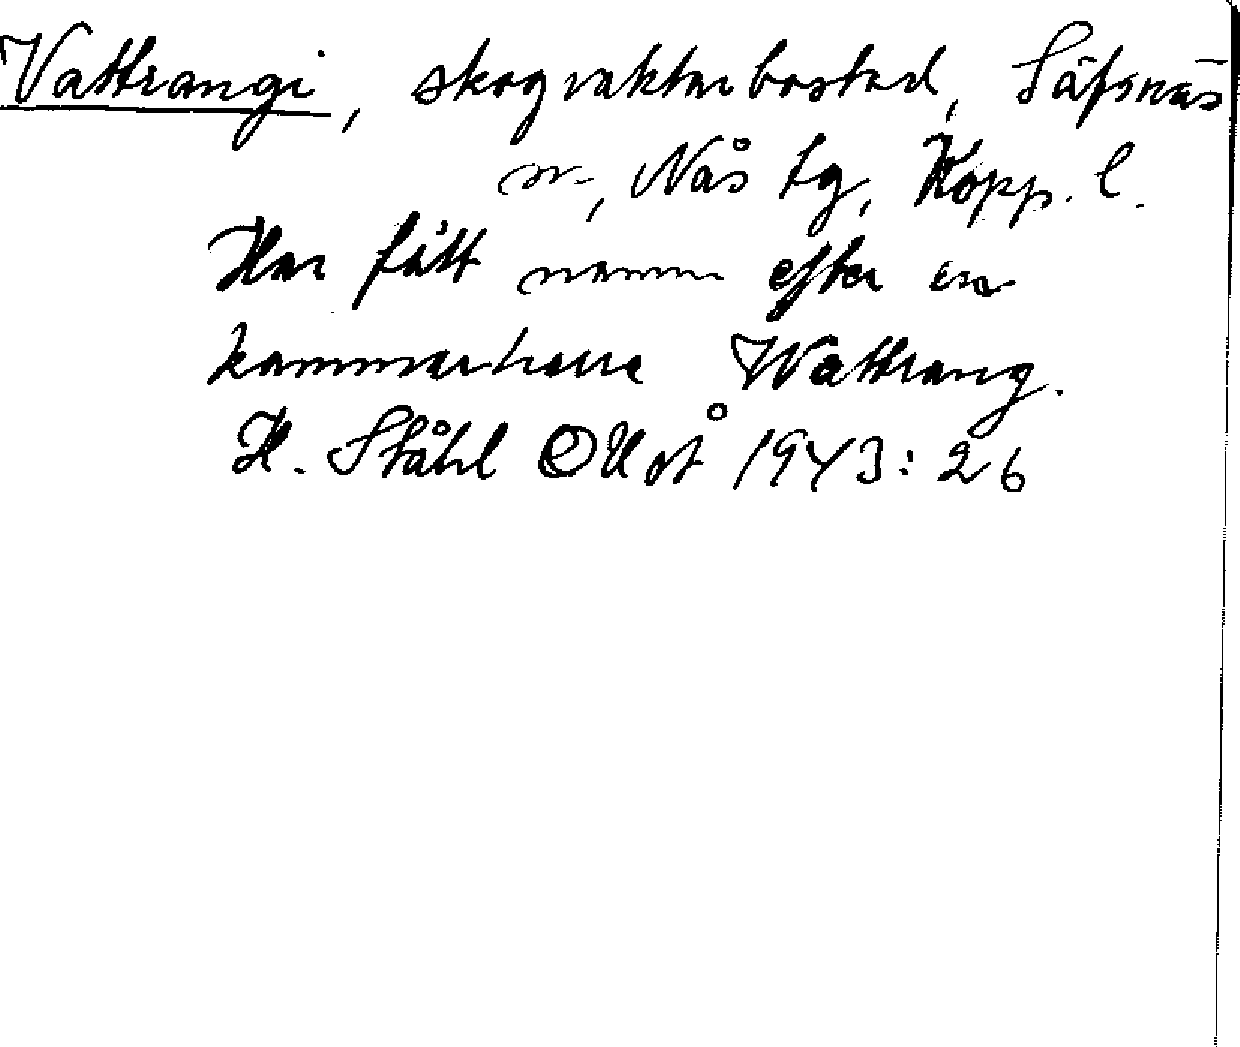 Vattrangi, skogvaktarbostad, Säfsnäs
sn, Nås tg, Kopp. l.
Har fått namn efter en
kammarherre Wattrang.
H. Ståhl OUÅ 1943: 26